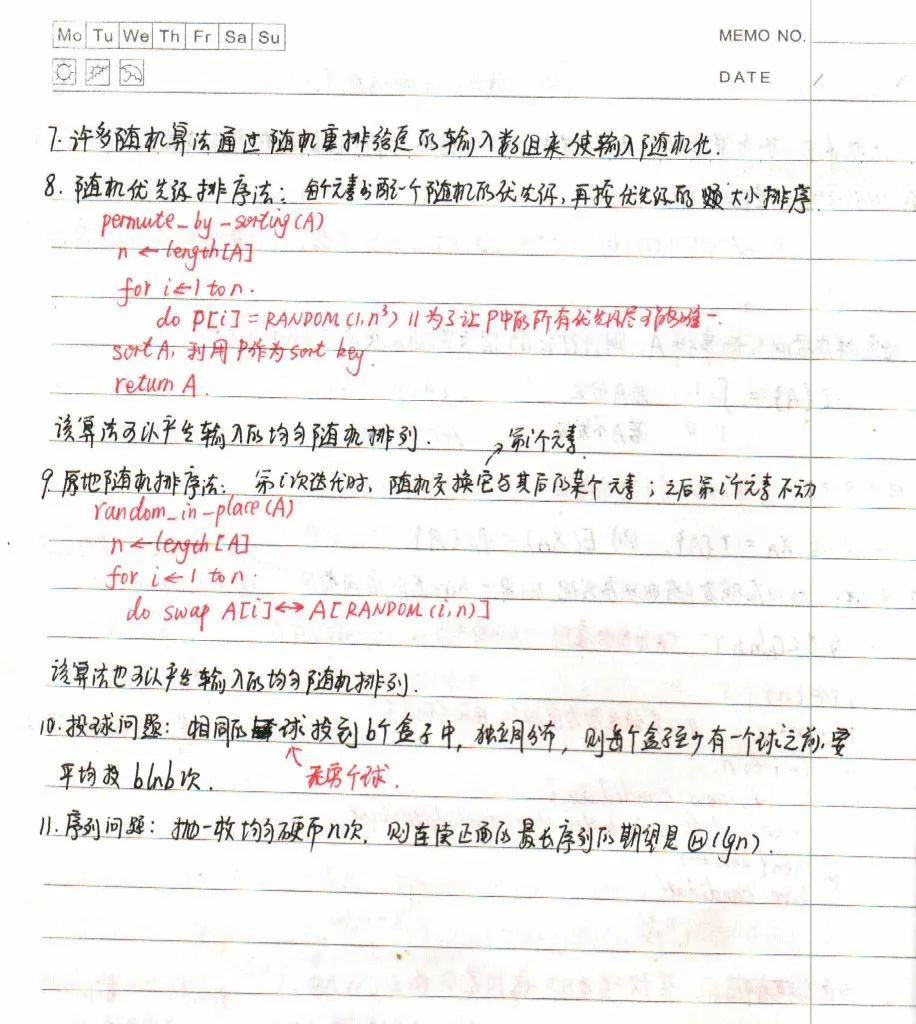 Mo Tu We Th Fr Sa Su
MEMO NO.
DATE / /
7. 许多随机算法通过随机重排给定的输入数组来使输入随机化.
8. 随机优先级排序法: 每个元素分配一个随机的优先级, 再按优先级的大小排序.
permute_by_sorting(A)
n ← length[A]
for i ← 1 to n.
do P[i] = RANDOM(1, n³) // 为了让P中的所有优先级尽可能唯一.
sort A, 利用P作为sort key
return A.
该算法可以产生输入的均匀随机排列.
↗ 第i个元素.
9. 原地随机排序法: 第i次迭代时, 随机交换它与其后的某个元素; 之后第i个元素不动
random_in_place(A)
n ← length[A]
for i ← 1 to n:
do swap A[i] ↔ A[RANDOM(i, n)]
该算法也可以产生输入的均匀随机排列.
10. 投球问题: 相同的球投到b个盒子中, 独立同分布, 则每个盒子至少有一个球之前, 要
平均投 blnb 次.
↖ 无穷个球.
11. 序列问题: 抛一枚均匀硬币n次, 则连续正面的最长序列的期望是 Θ(lgn).